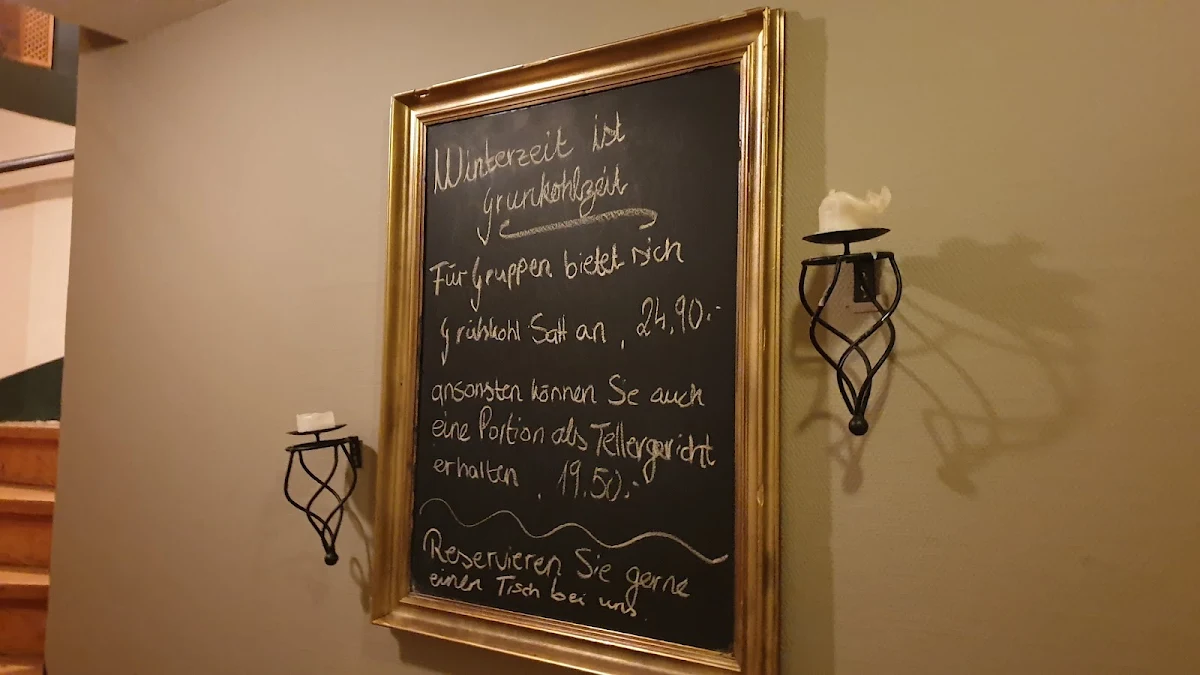 Winterzeit ist
grünkohlzeit
Für Gruppen bietet sich
grünkohl Satt an, 24,90.-
ansonsten können Sie auch
eine Portion als Tellergericht
erhalten, 19.50.-
Reservieren Sie gerne
einen Tisch bei uns.